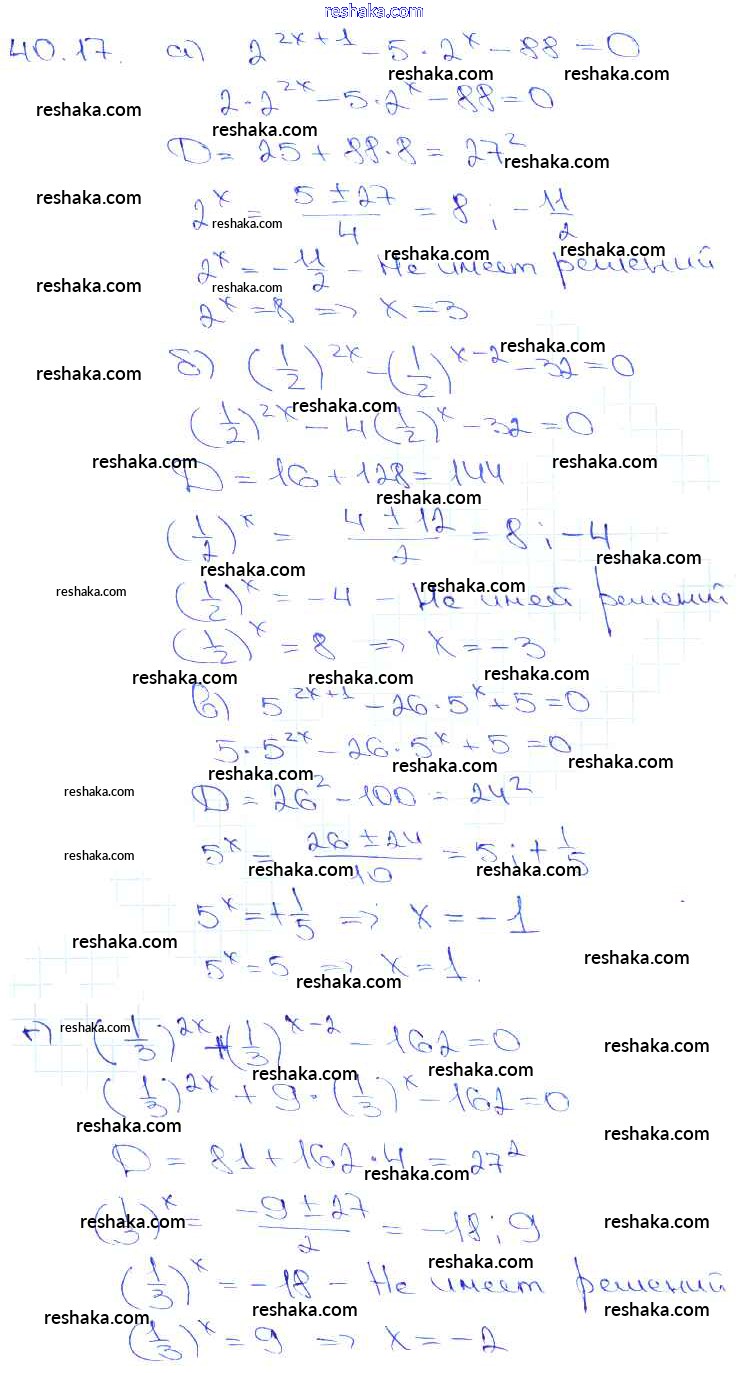 reshaka.com
40.17. а) 2^(2x+1) - 5·2^x - 88 = 0
reshaka.com reshaka.com
2·2^(2x) - 5·2^x - 88 = 0
reshaka.com reshaka.com
D = 25 + 88·8 = 27^2
reshaka.com
reshaka.com
2^x = (5 ± 27)/4 = 8; -11/2
reshaka.com
reshaka.com reshaka.com
2^x = -11/2 - Не имеет решений
reshaka.com reshaka.com
2^x = 8 => x = 3
б) (1/2)^(2x) - (1/2)^(x-2) - 32 = 0
reshaka.com reshaka.com
reshaka.com
(1/2)^(2x) - 4(1/2)^x - 32 = 0
reshaka.com reshaka.com
D = 16 + 128 = 144
reshaka.com
(1/2)^x = (4 ± 12)/2 = 8; -4
reshaka.com reshaka.com
reshaka.com reshaka.com
(1/2)^x = -4 - Не имеет решений
(1/2)^x = 8 => x = -3
reshaka.com reshaka.com reshaka.com
в) 5^(2x+1) - 26·5^x + 5 = 0
5·5^(2x) - 26·5^x + 5 = 0
reshaka.com reshaka.com reshaka.com
D = 26^2 - 100 = 24^2
reshaka.com
5^x = (26 ± 24)/10 = 5; +1/5
reshaka.com reshaka.com reshaka.com
5^x = +1/5 => x = -1
reshaka.com reshaka.com
5^x = 5 => x = 1
reshaka.com
г) (1/3)^(2x) + (1/3)^(x-2) - 162 = 0
reshaka.com reshaka.com
reshaka.com reshaka.com
(1/3)^(2x) + 9·(1/3)^x - 162 = 0
reshaka.com reshaka.com
D = 81 + 162·4 = 27^2
reshaka.com
(1/3)^x = (-9 ± 27)/2 = -18; 9
reshaka.com reshaka.com reshaka.com
reshaka.com
(1/3)^x = -18 - Не имеет решений
reshaka.com reshaka.com reshaka.com
(1/3)^x = 9 => x = -2